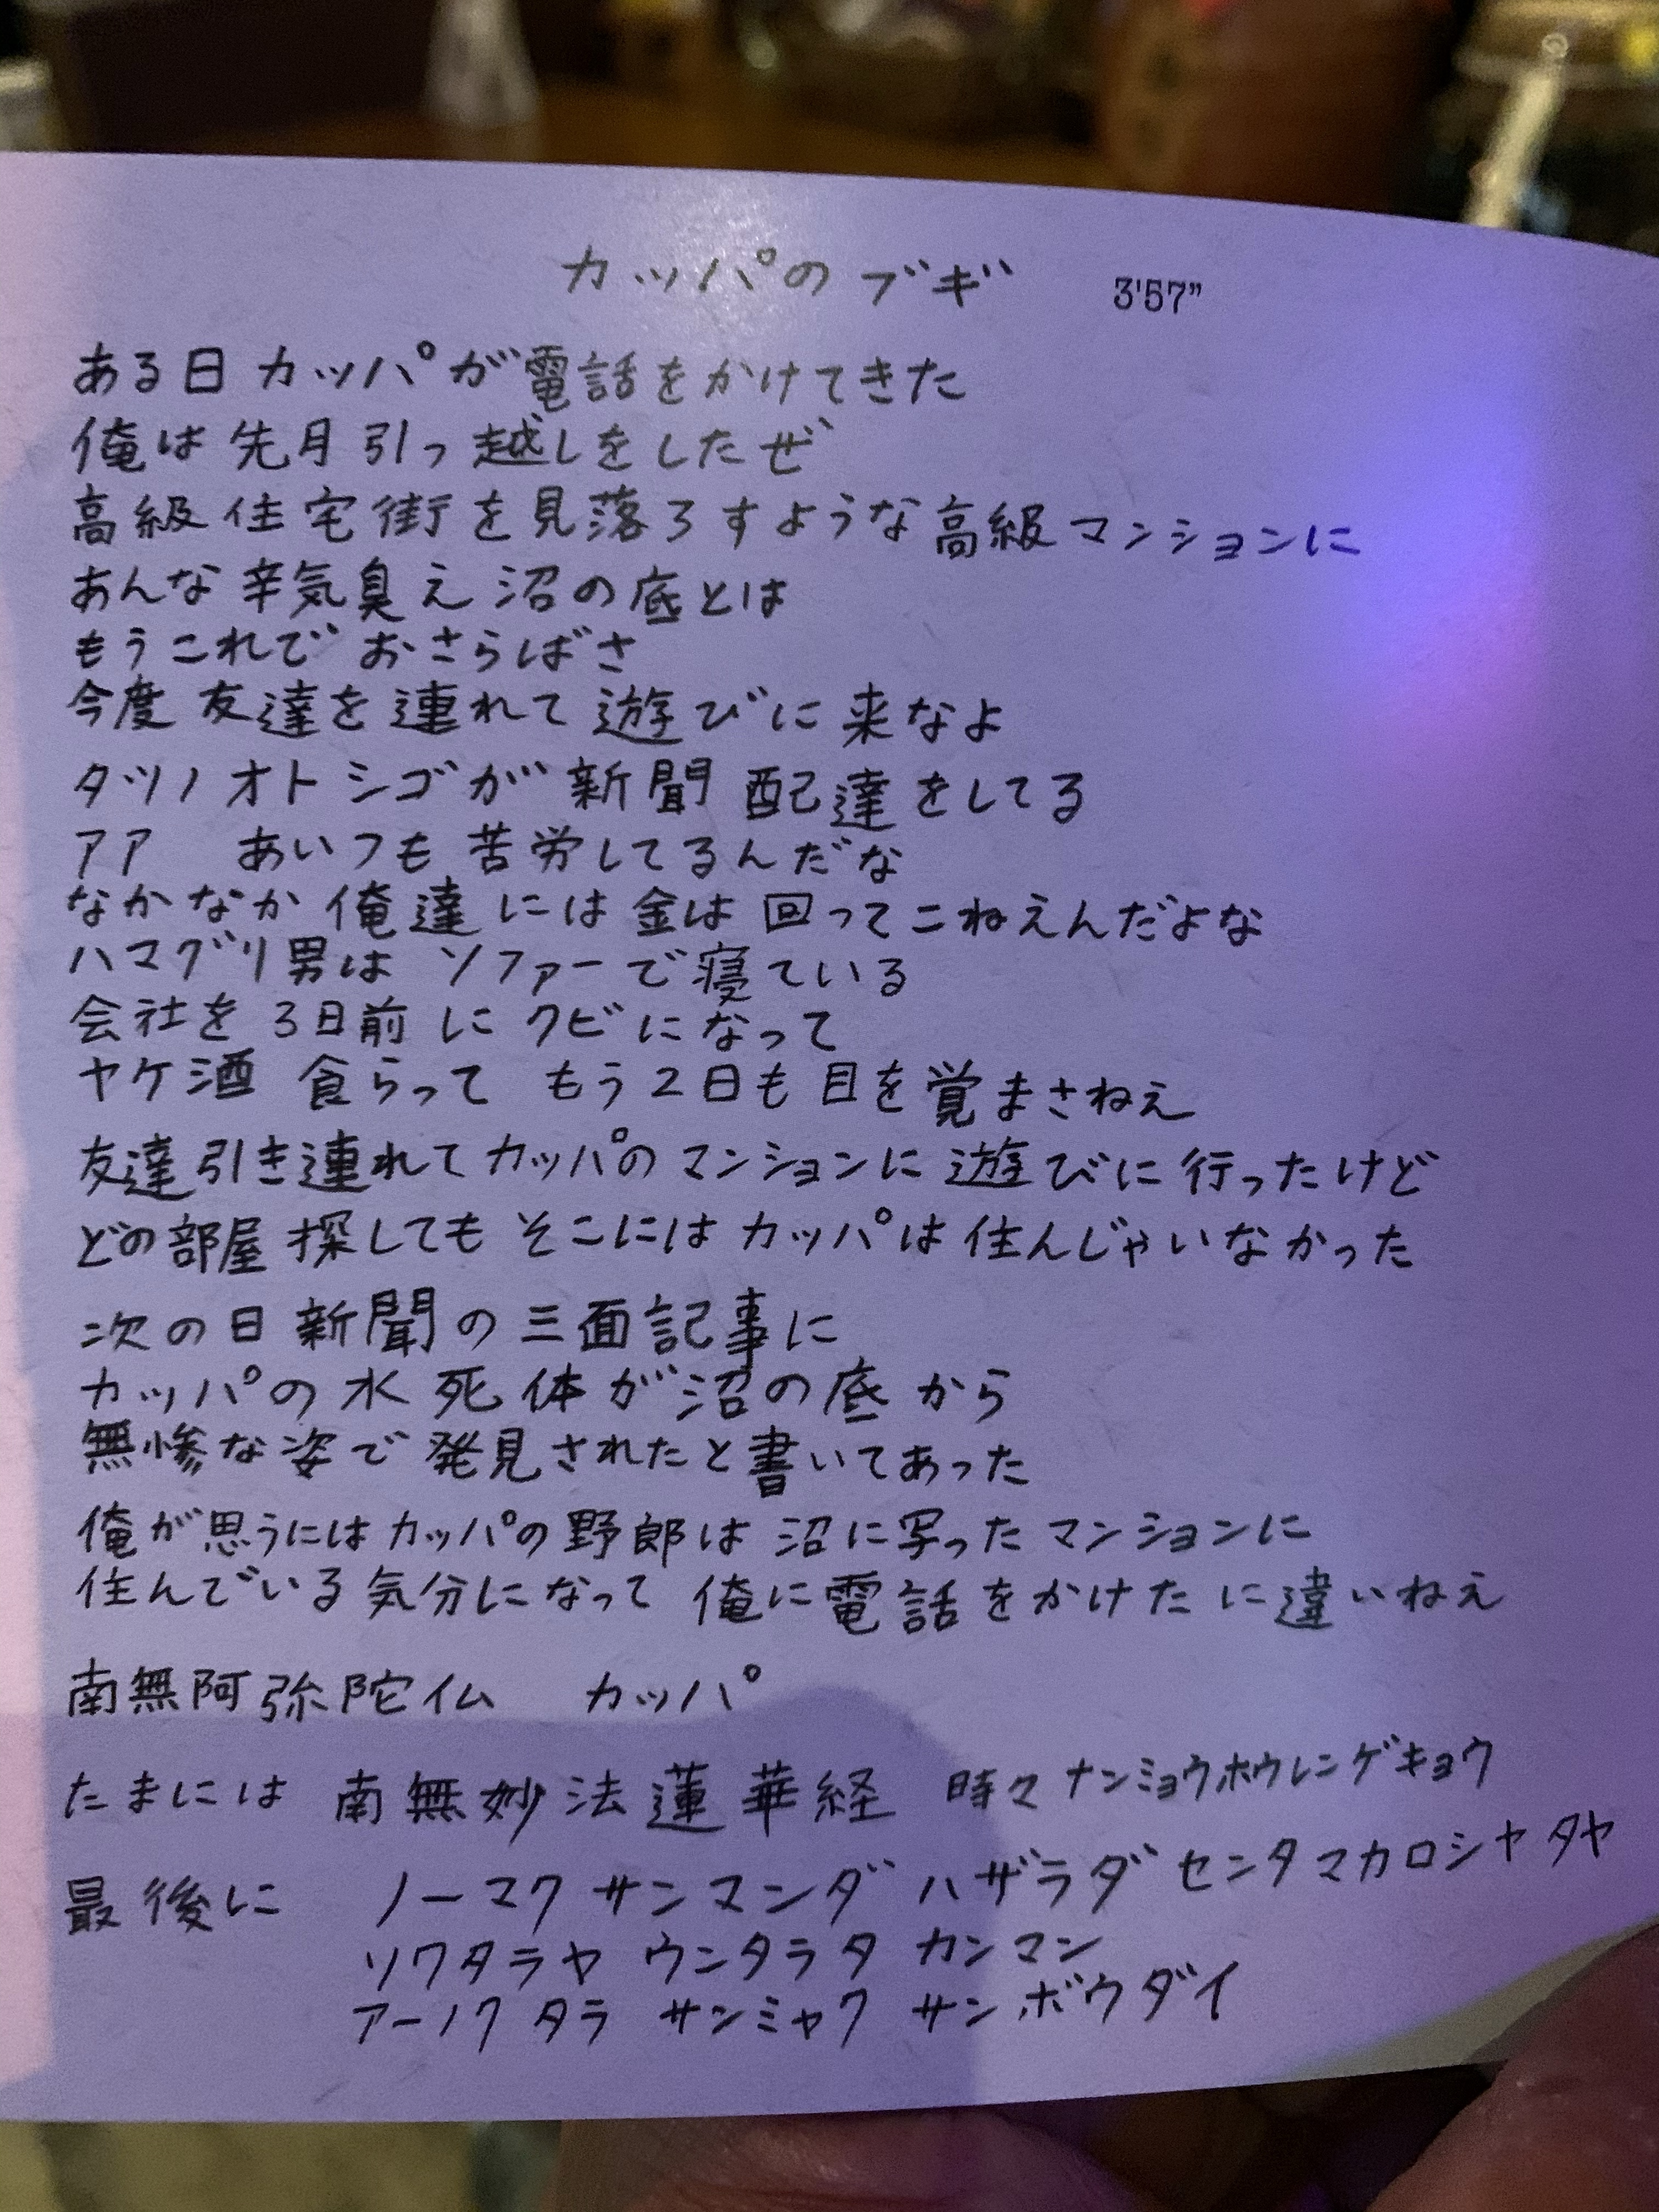 カッパのブギ 3'57"
ある日カッパが電話をかけてきた
俺は先月引っ越しをしたぜ
高級住宅街を見落ろすような高級マンションに
あんな辛気臭え沼の底とは
もうこれでおさらばさ
今度友達を連れて遊びに来なよ
タツノオトシゴが新聞配達をしてる
アア あいつも苦労してるんだな
なかなか俺達には金は回ってこねえんだよな
ハマグリ男はソファーで寝ている
会社を3日前にクビになって
ヤケ酒食らって もう2日も目を覚まさねえ
友達引き連れてカッパのマンションに遊びに行ったけど
どの部屋探してもそこにはカッパは住んじゃいなかった
次の日新聞の三面記事に
カッパの水死体が沼の底から
無惨な姿で発見されたと書いてあった
俺が思うにはカッパの野郎は沼に写ったマンションに
住んでいる気分になって俺に電話をかけたに違いねえ
南無阿弥陀仏 カッパ
たまには 南無妙法蓮華経 時々ナンミョウホウレンゲキョウ
最後に ノーマクサンマンダ ハザラダ センタマカロシャタヤ
ソワタラヤ ウンタラタ カンマン
アーノク タラ サンミャク サンボウダイ